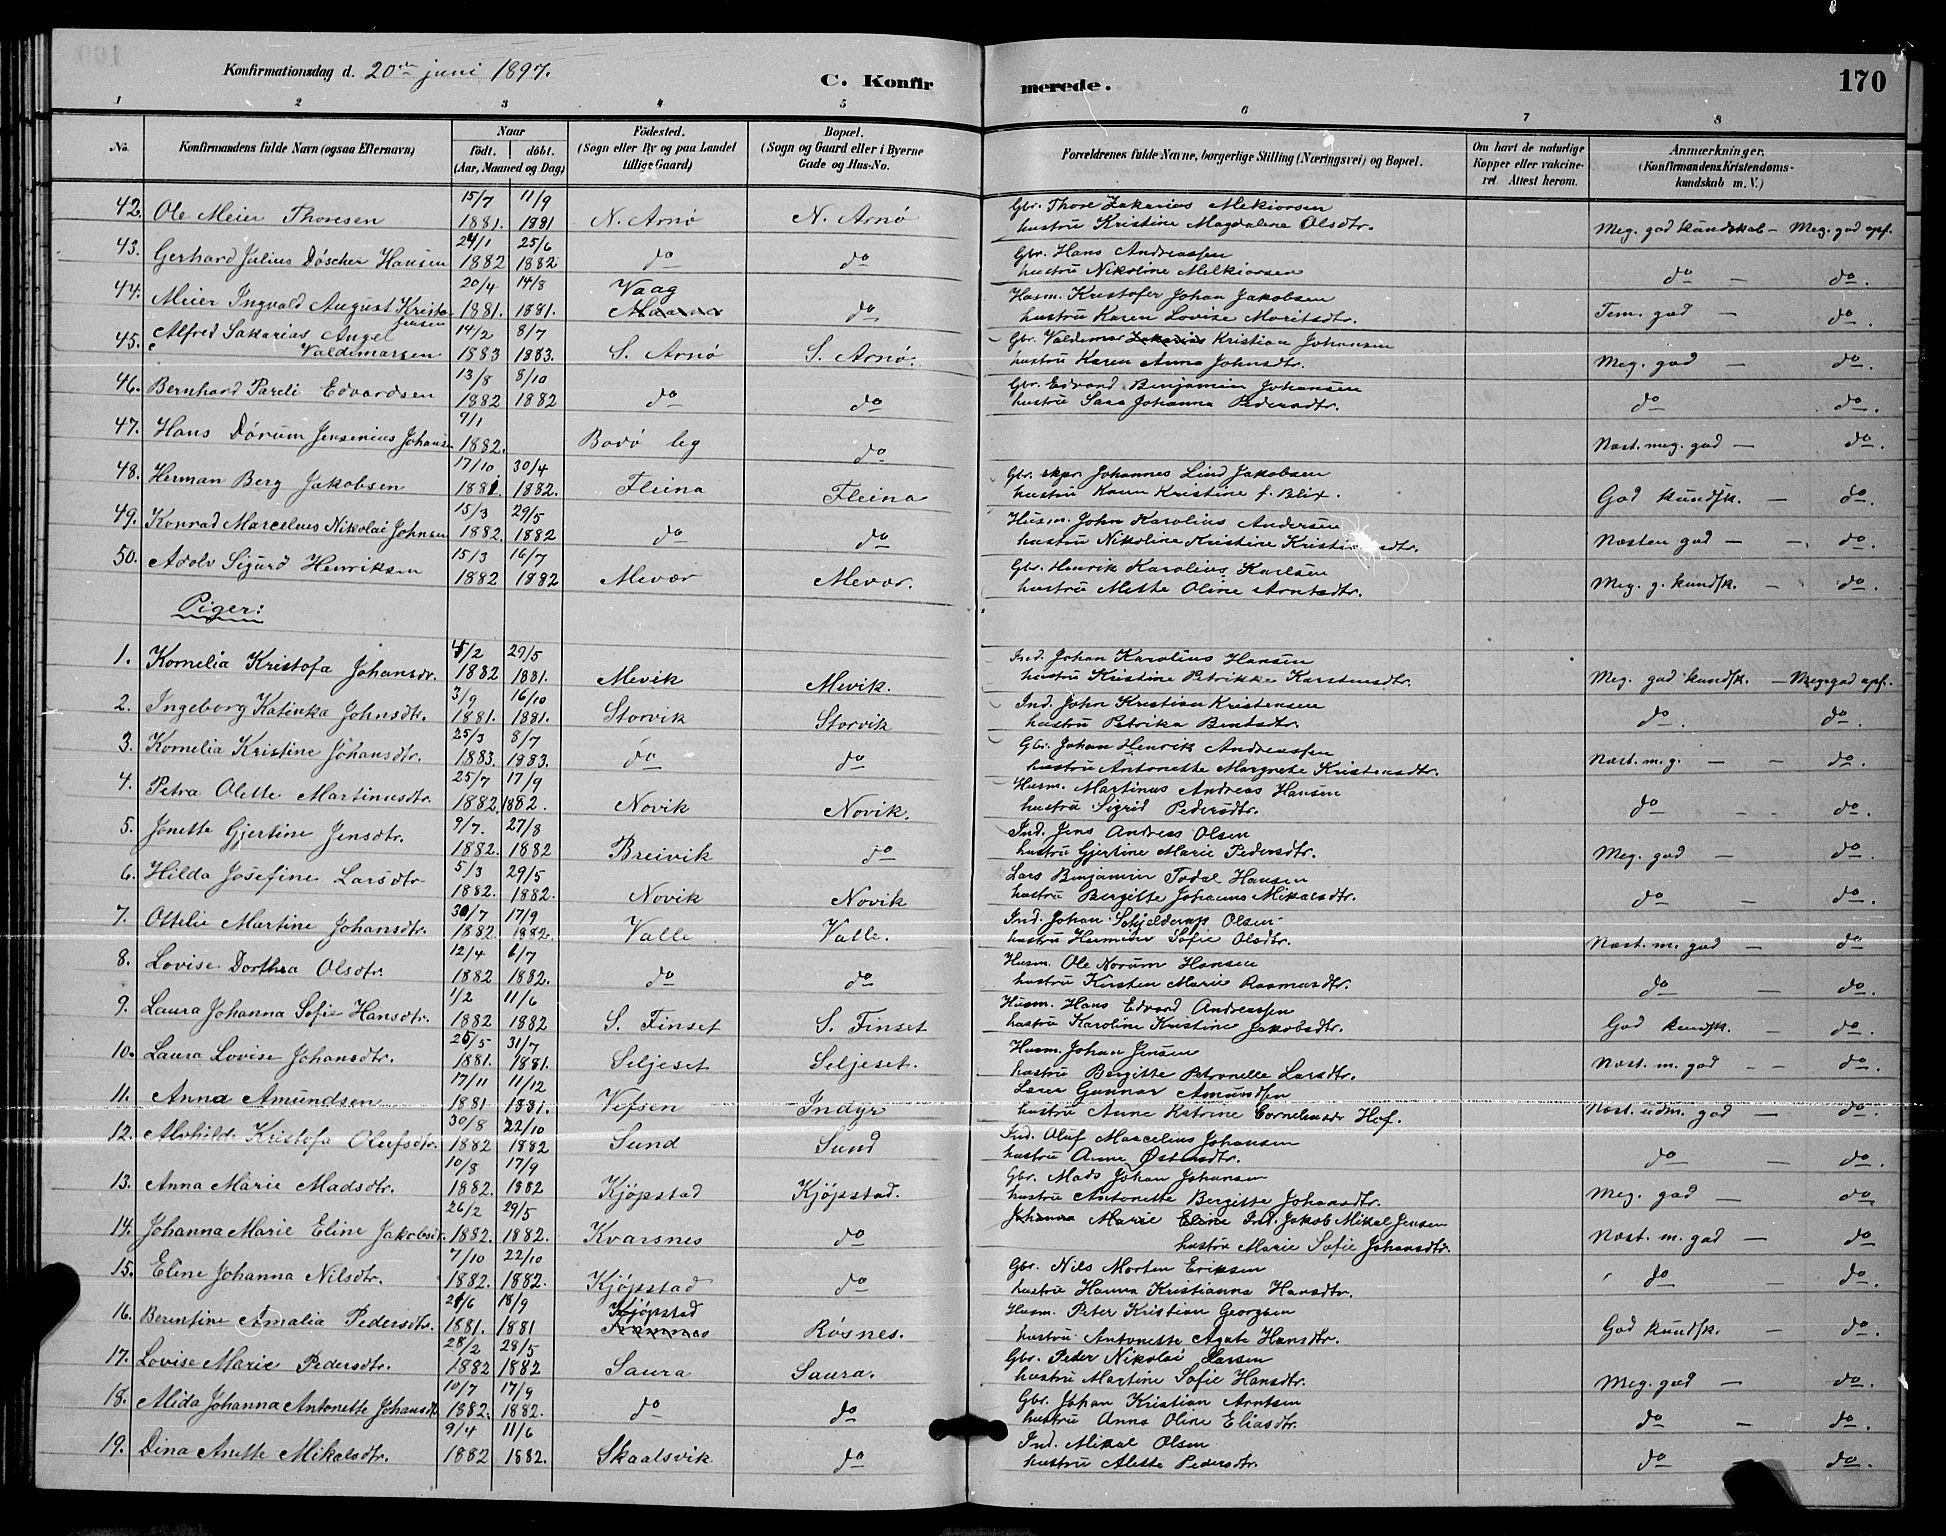 Konfirmationsdag d. 20de juni 1897.
C. Konfirmerede.
170
1 2 3 4 5 6 7 8
No.
Konfirmandens fulde Navn (ogsaa Efternavn)
Naar født. døbt. (Aar, Maaned og Dag)
Fødested. (Sogn eller By og paa Landet tillige Gaard)
Bopæl. (Sogn og Gaard eller i Byerne Gade og Hus-No.
Forældrenes fulde Navne, borgerlige Stilling (Næringsvei) og Bopæl.
Om havt de naturlige Kopper eller vakcineret. Attest herom.
Anmærkninger. (Konfirmandens Kristendomskundskab m. V.)
42. Ole Meier Thoresen 15/7 1881. 11/9 1881 N. Arnø N. Arnø Gbr. Thore Zakarias Mekiorsen hustru Kristine Magdalene Olsdtr. Meg. god kundskab – Meg. god opf.
43. Gerhard Julius Döscher Hansen 24/1 1882 25/6 1882 do do Gbr. Hans Andreassen hustru Nikoline Melkiorsen do – do.
44. Meier Ingvald August Kristofersen 20/4 1881. 14/8 1881. Vaag do Husm. Kristofer Johan Jakobsen hustru Karen Lovise Moritsdtr. Tem. god – do.
45. Alfred Sakarias Angel Valdemarsen 14/2 1883 8/7 1883. S. Arnø S. Arnø. Gbr. Valdemar Zakarias Kristian Johansen hustru Karen Anna Johnsdtr. Meg. god – do.
46. Bernhard Pareli Edvardsen 13/8 1882 8/10 1882 do do Gbr. Edvard Benjamin Johansen hustru Sara Johanna Pedersdtr. do do.
47. Hans Dörum Jensenius Johans 9/1 1882. Bodö leg do Næst. meg. god – do.
48. Herman Berg Jakobsen 17/10 1881. 30/4 1882. Fleina Fleina Gbr. skpr. Johannes Lind Jakobsen hustru Karen Kristine f. Blix. God kundsk. – do.
49. Konrad Marcelius Nikolai Johnsen 15/3 1882. 29/5 1882 do do Husm. John Karolius Andersen hustru Nikoline Kristine Kristin dtr. Næsten god – do.
50. Adolv Sigurd Henriksen 15/3 1882 16/7 1882 Mevær Mevær. Gbr. Henrik Karolius Karlsen hustru Mette Oline Arntsdtr. Meg. g. kundsk. – do.
Piger:
1. Kornelia Kristofa Johansdtr. 5/2 1882 29/5 1881. Mevik Mevik. Ind. Johan Karolius Hansen hustru Kristine Petrikke Karstensdtr. Meg. god kundsk. – Meg. god opf.
2. Ingeborg Katinka Johnsdtr. 3/9 1881. 16/10 1881. Storvik Storvik Ind. John Kristian Kristensen hustru Petrika Bentsdtr. do. do.
3. Kornelia Kristine Johansdtr. 25/3 1883. 8/7 1883. do do Gbr. Johan Henrik Andreassen hustru Antonette Margrete Kristensdtr. Næst. m. g. – do.
4. Petra Olette Martinusdtr. 25/7 1882. 17/9 1882. Novik Novik. Husm. Martinus Andreas Hansen hustru Sigrid Pedersdtr. do do.
5. Jonette Gjertine Jensdtr. 9/7. 1882. 27/8 1882 Breivik do Ind. Jens Andreas Olsen hustru Gjertine Marie Pedersdtr. Meg. god – do.
6. Hilda Josefine Larsdtr 5/3 1882. 29/5 1882. Novik Novik Lars Benjamin Todal Hansen hustru Bergitte Johanna Mikalsdtr. do – do.
7. Ottelie Martine Johansdtr. 30/7 1882. 17/9 1882. Valle Valle. Ind. Johan Schjelderup Olsen hustru Hermine Sofie Olsdtr. Næst. m. god – do
8. Lovise Dorthea Olsdtr. 12/4 1882 6/7 1882. do do Husm. Ole Norum Hansen hustru Kirsten Marie Rasmusdtr. do – do.
9. Laura Johanna Sofie Hansdtr. 1/2 1882 11/6 1882 S. Finset S. Finset Husm. Hans Edvard Andreassen hustru Karoline Kristine Jakobsdtr. God kundsk. – do.
10. Laura Lovise Johansdtr. 26/5 1881. 31/7 1881. Seljeset Seljeset. Husm. Johan Jensen hustru Bergitte Petronelle Larsdtr. Næst. m. god – do.
11. Anna Amundsen 17/11 1881 11/12 1881. Vefsen Indyr Lærer Gunnar Amundsen hustru Anne Katrine Cornelius Hof. Næst. udm. god – do.
12. Alvhild Kristofa Olufsdtr. 30/8 1882 22/10 1882 Sund Sund Ind. Oluf Marcelius Johansen hustru Anne Østensdtr. do – do.
13. Anna Marie Madsdtr. 10/8 1882. 17/9 1882 Kjøpstad Kjøpstad. Gbr. Mads Johan Johansen hustru Antonette Bergitte Johansdtr. Meg. god – do
14. Johanna Marie Eline Jakobsdtr. 26/2 1882. 29/5 1882. Kvarsnes do Johanna Marie Eline Ind. Jakob Mikal Jensen hustru Marie Sofie Johansdtr. Næst. m. god – do
15. Eline Johanna Nilsdtr. 7/10 1882. 22/10 1882. Kjøpstad do Gbr. Nils Morten Eriksen hustru Hanna Kristianna Hansdtr. do – do.
16. Berentine Amalia Pedersdtr. 21/6 1881. 18/9 1881 Kjøpstad Røsnes. Husm. Peter Kristian Georgsen hustru Antonette Agate Hansdtr. God kundsk. – do.
17. Lovise Marie Pedersdtr. 28/2 1882 29/5 1882 Saura Saura. Gbr. Peder Nikolai Larsen hustru Martine Sofie Hansdtr. Meg. god – do.
18. Alida Johanna Antonette Johansdtr 10/7 1882. 17/9 1882. do do Gbr. Johan Kristian Arntsen hustru Anna Oline Eliasdtr. do – do.
19. Dina Anette Mikalsdtr. 9/4 1882 11/6 1882. Skaalsvik do Ind. Mikal Olsen hustru Alette Pedersdtr. do – do.